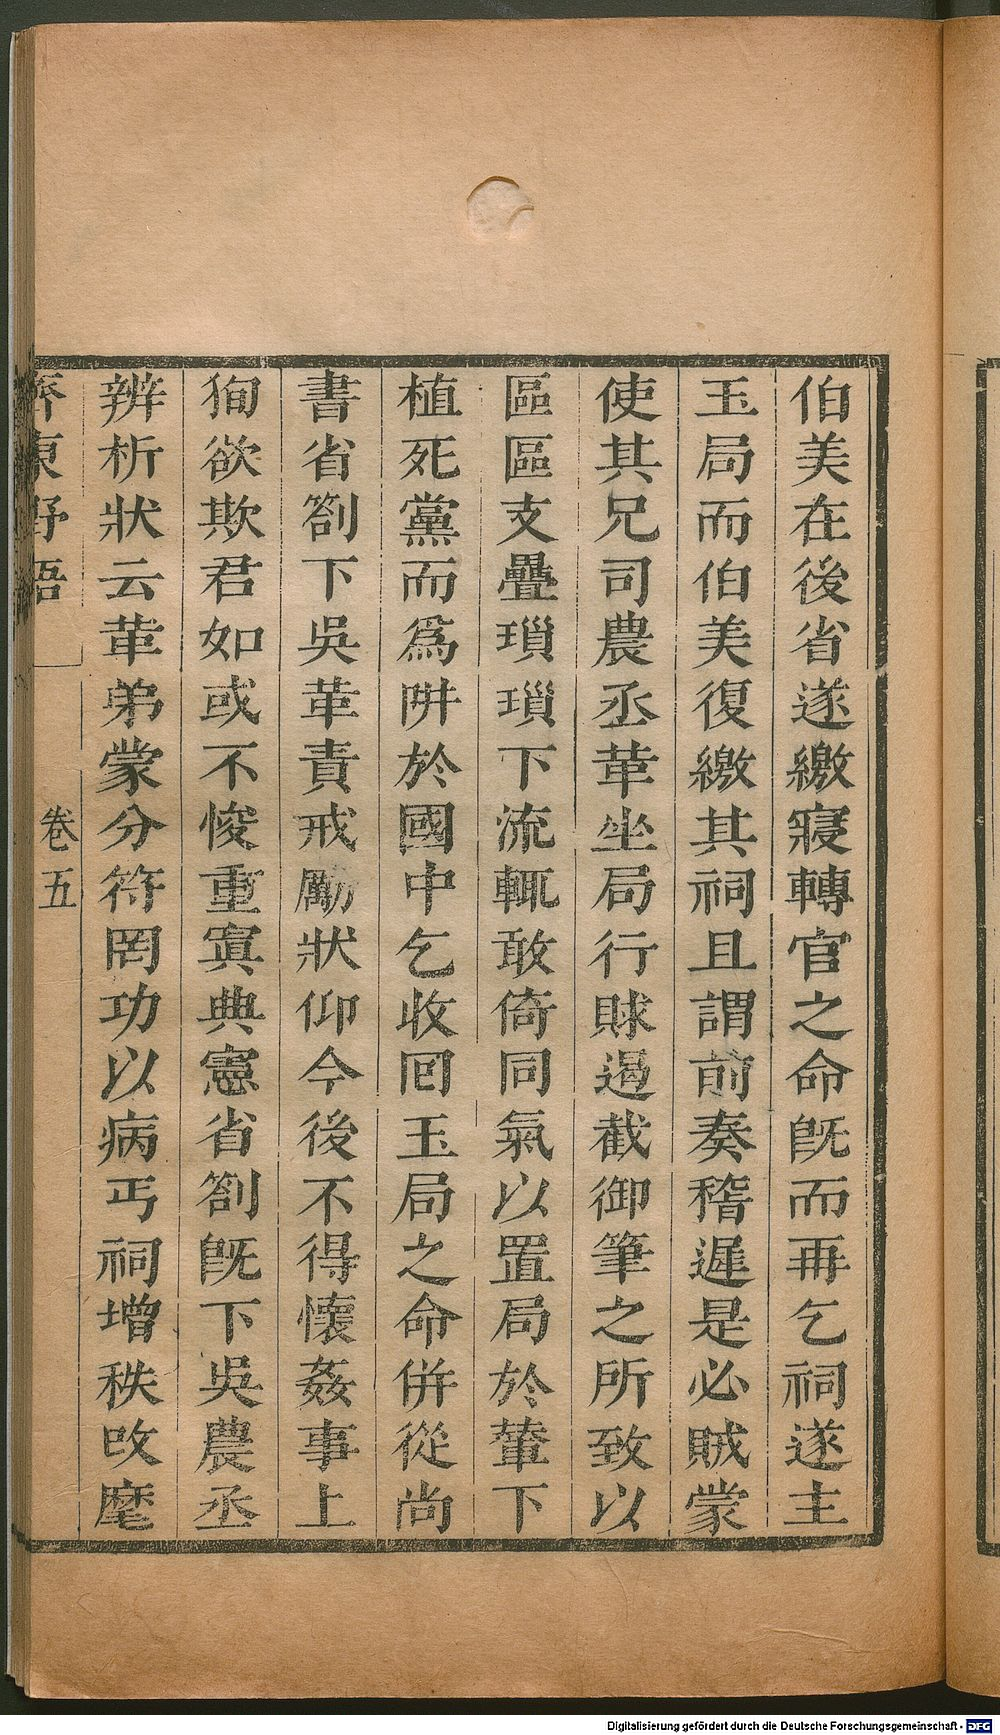 伯美在後省遂繳寢轉官之命旣而再乞祠遂主
玉局而伯美復繳其祠且謂前奏稽遲是必賊蒙
使其兄司農丞革坐局行賕遏截御筆之所致以
區區支疊瑣瑣下流輒敢倚同氣以置局於輦下
植死黨而爲阱於國中乞收囘玉局之命併從尚
書省劄下吳革責戒勵狀仰今後不得懷姦事上
徇欲欺君如或不悛重寘典憲省劄旣下吳農丞
辨析狀云革弟蒙分符罔功以病丐祠增秩改麾
齊東野語 卷五
Digitalisierung gefördert durch die Deutsche Forschungsgemeinschaft - DFG